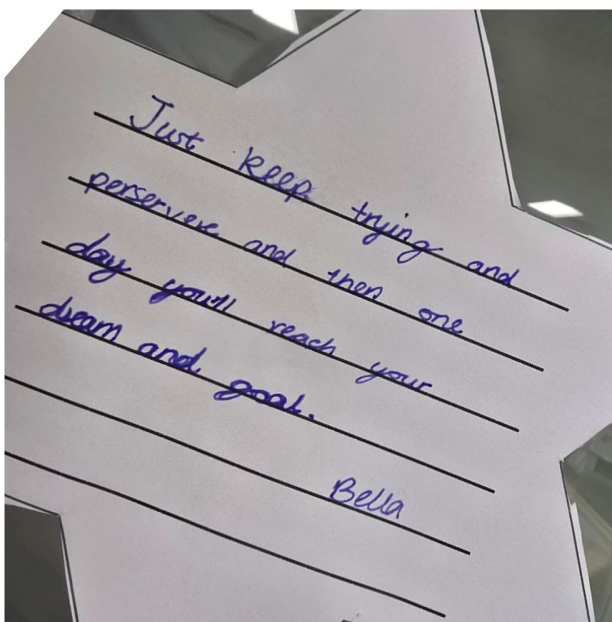 Just keep trying and
perservere and then one
day you'll reach your
dream and goal.
Bella